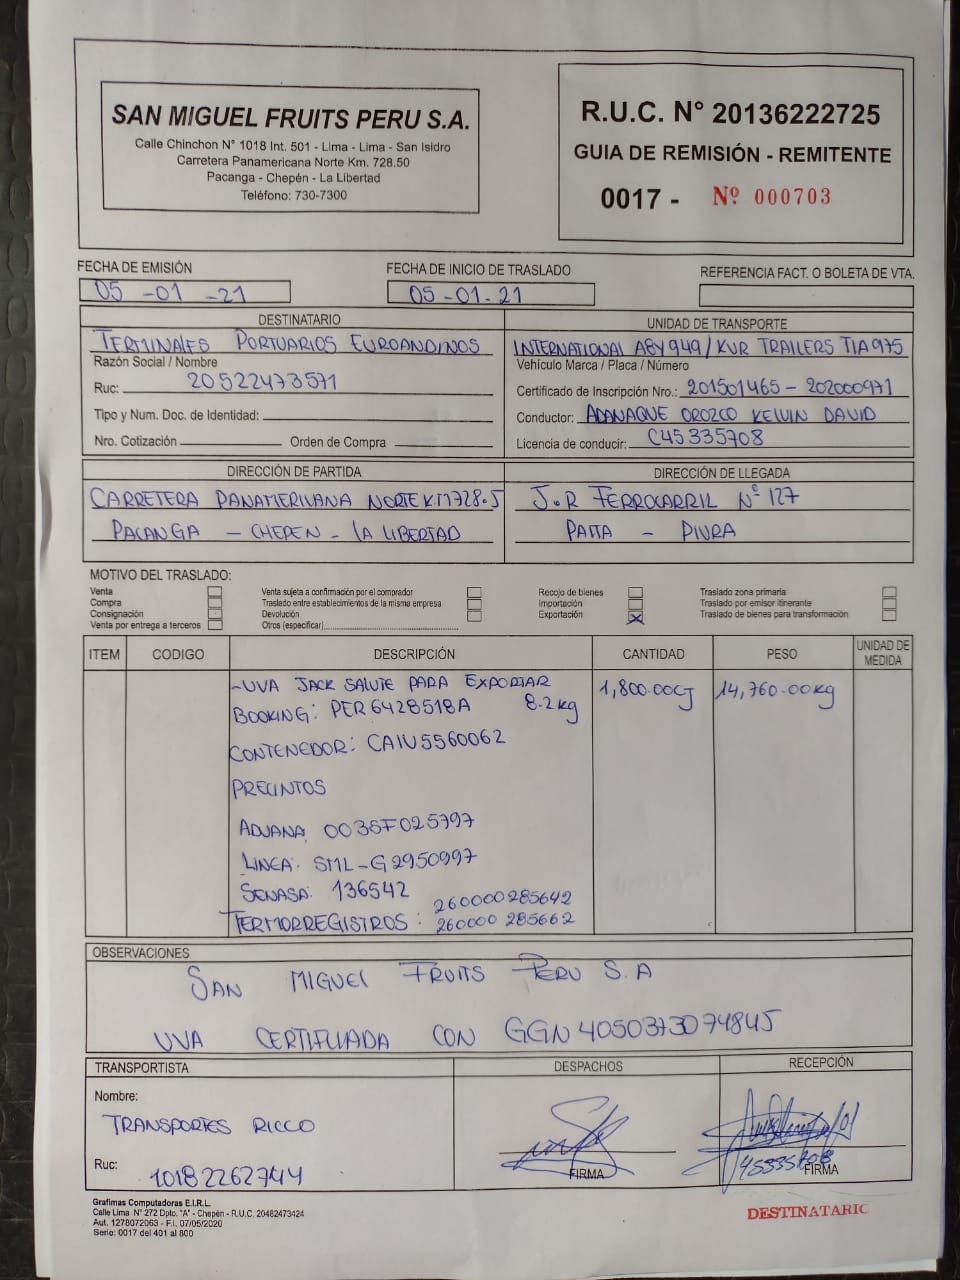 SAN MIGUEL FRUITS PERU S.A.
Calle Chinchon N° 1018 Int. 501 - Lima - Lima - San Isidro
Carretera Panamericana Norte Km. 728.50
Pacanga - Chepén - La Libertad
Teléfono: 730-7300
R.U.C. N° 20136222725
GUIA DE REMISIÓN - REMITENTE
0017 - Nº 000703
FECHA DE EMISIÓN
05 -01 -21
FECHA DE INICIO DE TRASLADO
05-01-21
REFERENCIA FACT. O BOLETA DE VTA.
DESTINATARIO
TERMINALES PORTUARIOS EUROANDINOS
Razón Social / Nombre
Ruc: 20522473571
Tipo y Num. Doc. de Identidad:
Nro. Cotización Orden de Compra
UNIDAD DE TRANSPORTE
INTERNATIONAL A8Y949/KUR TRAILERS T1A975
Vehículo Marca / Placa / Número
Certificado de Inscripción Nro.: 201501465 - 202000971
Conductor: ADANAQUE OROZCO KELVIN DAVID
Licencia de conducir: C45335708
DIRECCIÓN DE PARTIDA
CARRETERA PANAMERICANA NORTE KM728.5
PACANGA - CHEPEN - LA LIBERTAD
DIRECCIÓN DE LLEGADA
J.R FERROCARRIL N° 127
PAITA - PIURA
MOTIVO DEL TRASLADO:
Venta
Compra
Consignación
Venta por entrega a terceros
Venta sujeta a confirmación por el comprador
Traslado entre establecimientos de la misma empresa
Devolución
Otros (especificar)
Recojo de bienes
Importación
Exportación X
Traslado zona primaria
Traslado por emisor itinerante
Traslado de bienes para transformación
ITEM CODIGO DESCRIPCIÓN CANTIDAD PESO UNIDAD DE MEDIDA
-UVA JACK SALUTE PARA EXPORTAR 1,800.00CJ 14,760.00kg
BOOKING: PER6428518A 8.2kg
CONTENEDOR: CAIU5560062
PRECINTOS
ADUANA 0035F025797
LINEA: SML-G2950997
SENASA: 136542
260000285642
TERMORREGISTROS : 260000 285662
OBSERVACIONES
SAN MIGUEL FRUITS PERU S.A
UVA CERTIFICADA CON GGN 4050373074845
TRANSPORTISTA
Nombre:
TRANSPORTES RICCO
Ruc: 10182262744
DESPACHOS
FIRMA
RECEPCIÓN
45335708
FIRMA
Grafimas Computadoras E.I.R.L.
Calle Lima N° 272 Dpto. "A" - Chepén - R.U.C. 20482473424
Aut. 1278072063 - F.I. 07/05/2020
Serie: 0017 del 401 al 800
DESTINATARIO